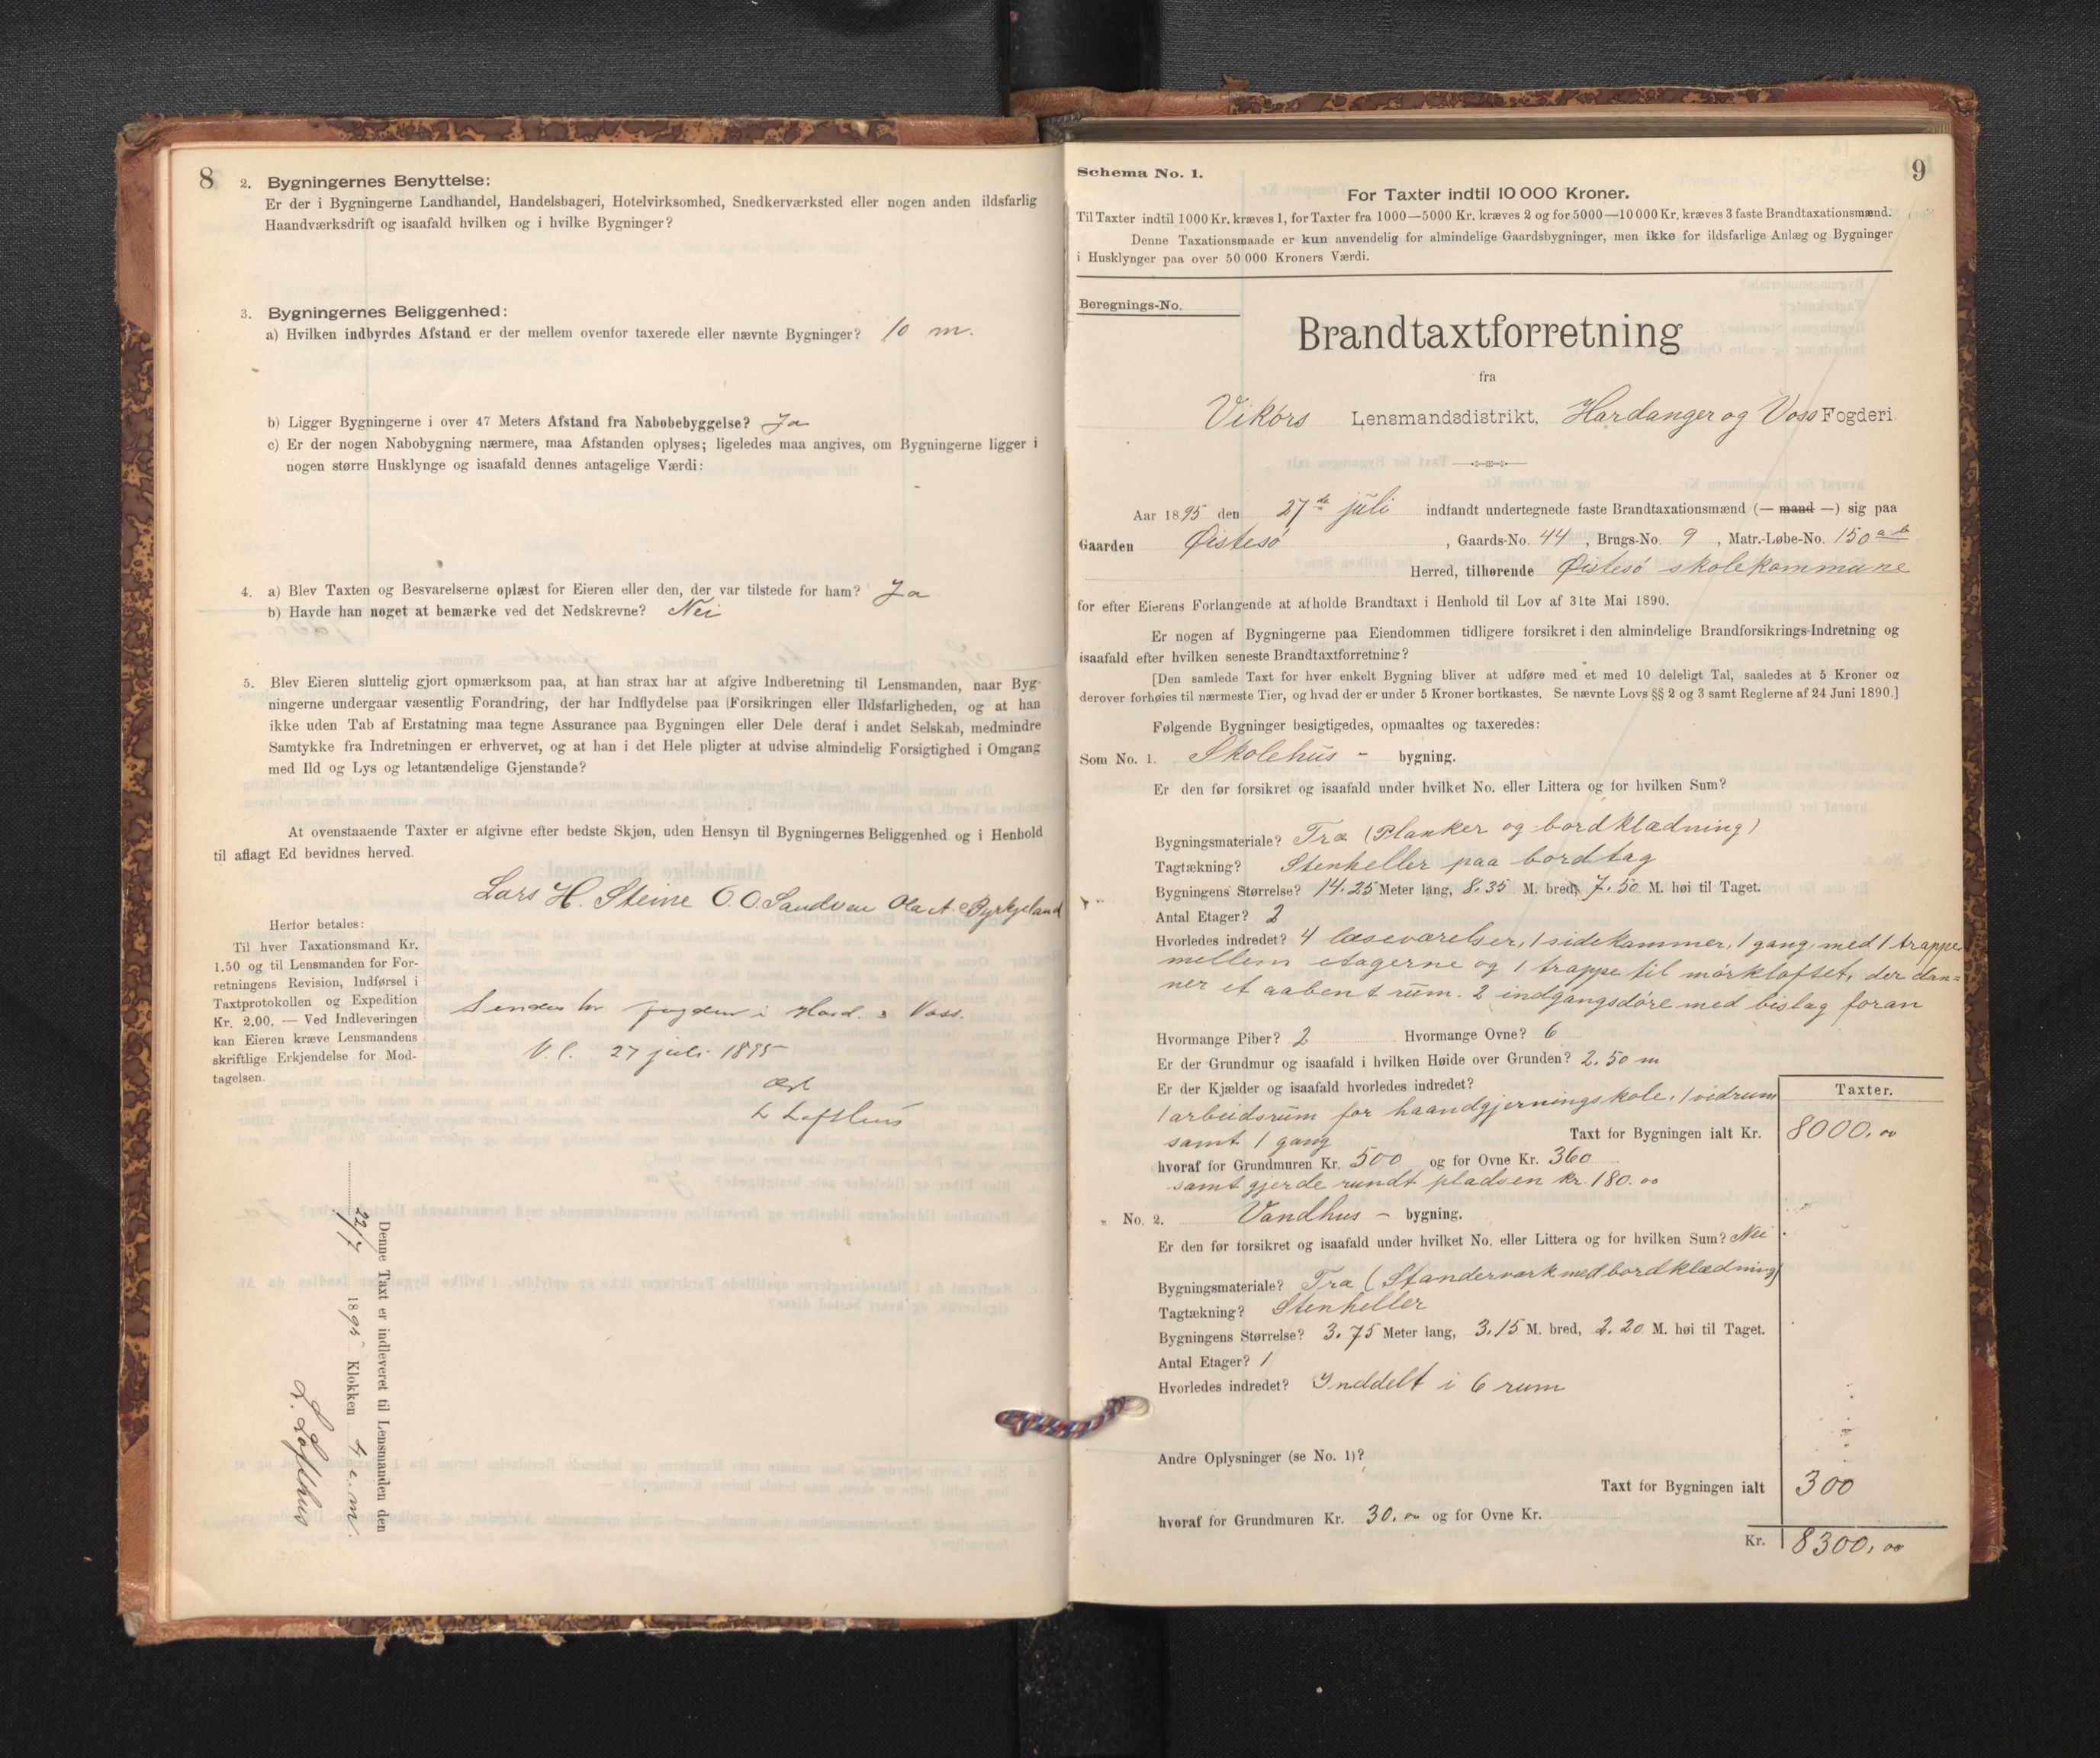 8
2. Bygningernes Benyttelse:
Er der i Bygningerne Landhandel, Handelsbageri, Hotelvirksomhed, Snedkerværksted eller nogen anden ildsfarlig
Haandværksdrift og isaafald hvilken og i hvilke Bygninger?
3. Bygningernes Beliggenhed:
a) Hvilken indbyrdes Afstand er der mellem ovenfor taxerede eller nævnte Bygninger? 10 m.
b) Ligger Bygningerne i over 47 Meters Afstand fra Nabobebyggelse? Ja
c) Er der nogen Nabobygning nærmere, maa Afstanden oplyses; ligeledes maa angives, om Bygningerne ligger i
nogen større Husklynge og isaafald dennes antagelige Værdi:
4. a) Blev Taxten og Besvarelserne oplæst for Eieren eller den, der var tilstede for ham? Ja
b) Havde han noget at bemærke ved det Nedskrevne? Nei
5. Blev Eieren sluttelig gjort opmærksom paa, at han strax har at afgive Indberetning til Lensmanden, naar Byg-
ningerne undergaar væsentlig Forandring, der har Indflydelse paa Forsikringen eller Ildsfarligheden, og at han
ikke uden Tab af Erstatning maa tegne Assurance paa Bygningen eller Dele deraf i andet Selskab, medmindre
Samtykke fra Indretningen er erhvervet, og at han i det Hele pligter at udvise almindelig Forsigtighed i Omgang
med Ild og Lys og letantændelige Gjenstande?
At ovenstaaende Taxter er afgivne efter bedste Skjøn, uden Hensyn til Bygningernes Beliggenhed og i Henhold
til aflagt Ed bevidnes herved.
Lars H. Steine O. O. Sandven Ola A. Byrkjeland
Herfor betales:
Til hver Taxationsmand Kr.
1.50 og til Lensmanden for For-
retningens Revision, Indførsel i
Taxtprotokollen og Expedition
Kr. 2.00. — Ved Indleveringen
kan Eieren kræve Lensmandens
skriftlige Erkjendelse for Mod-
tagelsen.
Sendes hr fogden i Hard. & Voss.
V. l. 27 juli 1895
L Lofthus
Denne Taxt er indleveret til Lensmanden den
22/7 1895 Klokken 4 e. m.
L. Lofthus
9
Schema No. 1.
For Taxter indtil 10 000 Kroner.
Til Taxter indtil 1000 Kr. kræves 1, for Taxter fra 1000—5000 Kr. kræves 2 og for 5000—10000 Kr. kræves 3 faste Brandtaxationsmænd.
Denne Taxationsmaade er kun anvendelig for almindelige Gaardsbygninger, men ikke for ildsfarlige Anlæg og Bygninger
i Husklynger paa over 50 000 Kroners Værdi.
Beregnings-No.
Brandtaxtforretning
fra
Vikørs Lensmandsdistrikt, Hardanger og Voss Fogderi.
Aar 1895 den 27de juli indfandt undertegnede faste Brandtaxationsmænd (— mand —) sig paa
Gaarden Øistesø, Gaards-No. 44, Brugs-No. 9, Matr.-Løbe-No. 150 a b
Herred, tilhørende Øistesø skolekommune
for efter Eierens Forlangende at afholde Brandtaxt i Henhold til Lov af 31te Mai 1890.
Er nogen af Bygningerne paa Eiendommen tidligere forsikret i den almindelige Brandforsikrings-Indretning og
isaafald efter hvilken seneste Brandtaxtforretning?
[Den samlede Taxt for hver enkelt Bygning bliver at udføre med et med 10 deleligt Tal, saaledes at 5 Kroner og
derover forhøies til nærmeste Tier, og hvad der er under 5 Kroner bortkastes. Se nævnte Lovs §§ 2 og 3 samt Reglerne af 24 Juni 1890.]
Følgende Bygninger besigtigedes, opmaaltes og taxeredes:
Som No. 1. Skolehus - bygning.
Er den før forsikret og isaafald under hvilket No. eller Littera og for hvilken Sum?
Bygningsmateriale? Træ (Planker og bordklædning)
Tagtækning? Stenheller paa bordtag
Bygningens Størrelse? 14.25 Meter lang, 8.35 M. bred, 7.50 M. høi til Taget.
Antal Etager? 2
Hvorledes indredet? 4 læseværelser, 1 sidekammer, 1 gang, med 1 trappe
mellem etagerne og 1 trappe til mørkloftet, der dan=
ner et aabent rum. 2 indgangsdøre med bislag foran
Hvormange Piber? 2 Hvormange Ovne? 6
Er der Grundmur og isaafald i hvilken Høide over Grunden? 2.50 m
Er der Kjælder og isaafald hvorledes indredet?
1 arbeidsrum for haandgjerningskole, 1 vidrum
samt 1 gang
Taxter.
Taxt for Bygningen ialt Kr. 8000.00
hvoraf for Grundmuren Kr. 500 og for Ovne Kr. 360
samt gjerde rundt pladsen kr. 180.00
" No. 2. Vandhus - bygning.
Er den før forsikret og isaafald under hvilket No. eller Littera og for hvilken Sum? Nei
Bygningsmateriale? Træ (Standerværk med bordklædning)
Tagtækning? Stenheller
Bygningens Størrelse? 3.75 Meter lang, 3.15 M. bred, 2.20 M. høi til Taget.
Antal Etager? 1
Hvorledes indredet? Inddelt i 6 rum
Andre Oplysninger (se No. 1)?
Taxt for Bygningen ialt 300
hvoraf for Grundmuren Kr. 30.00 og for Ovne Kr.
Kr. 8300.00